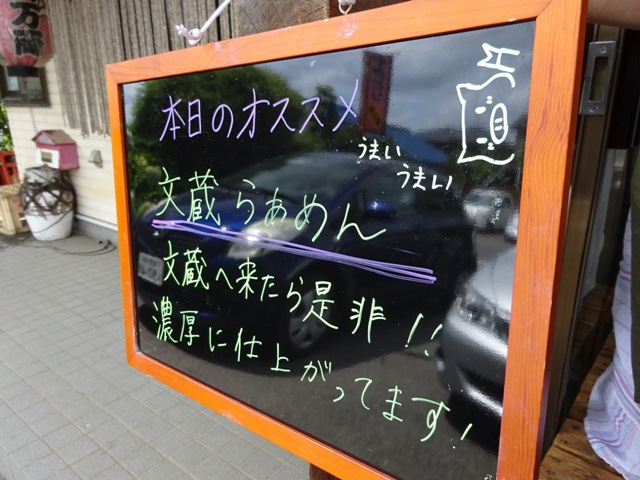 本日のオススメ
うまい
うまい
文蔵らぁめん
文蔵へ来たら是非!!
濃厚に仕上がってます!